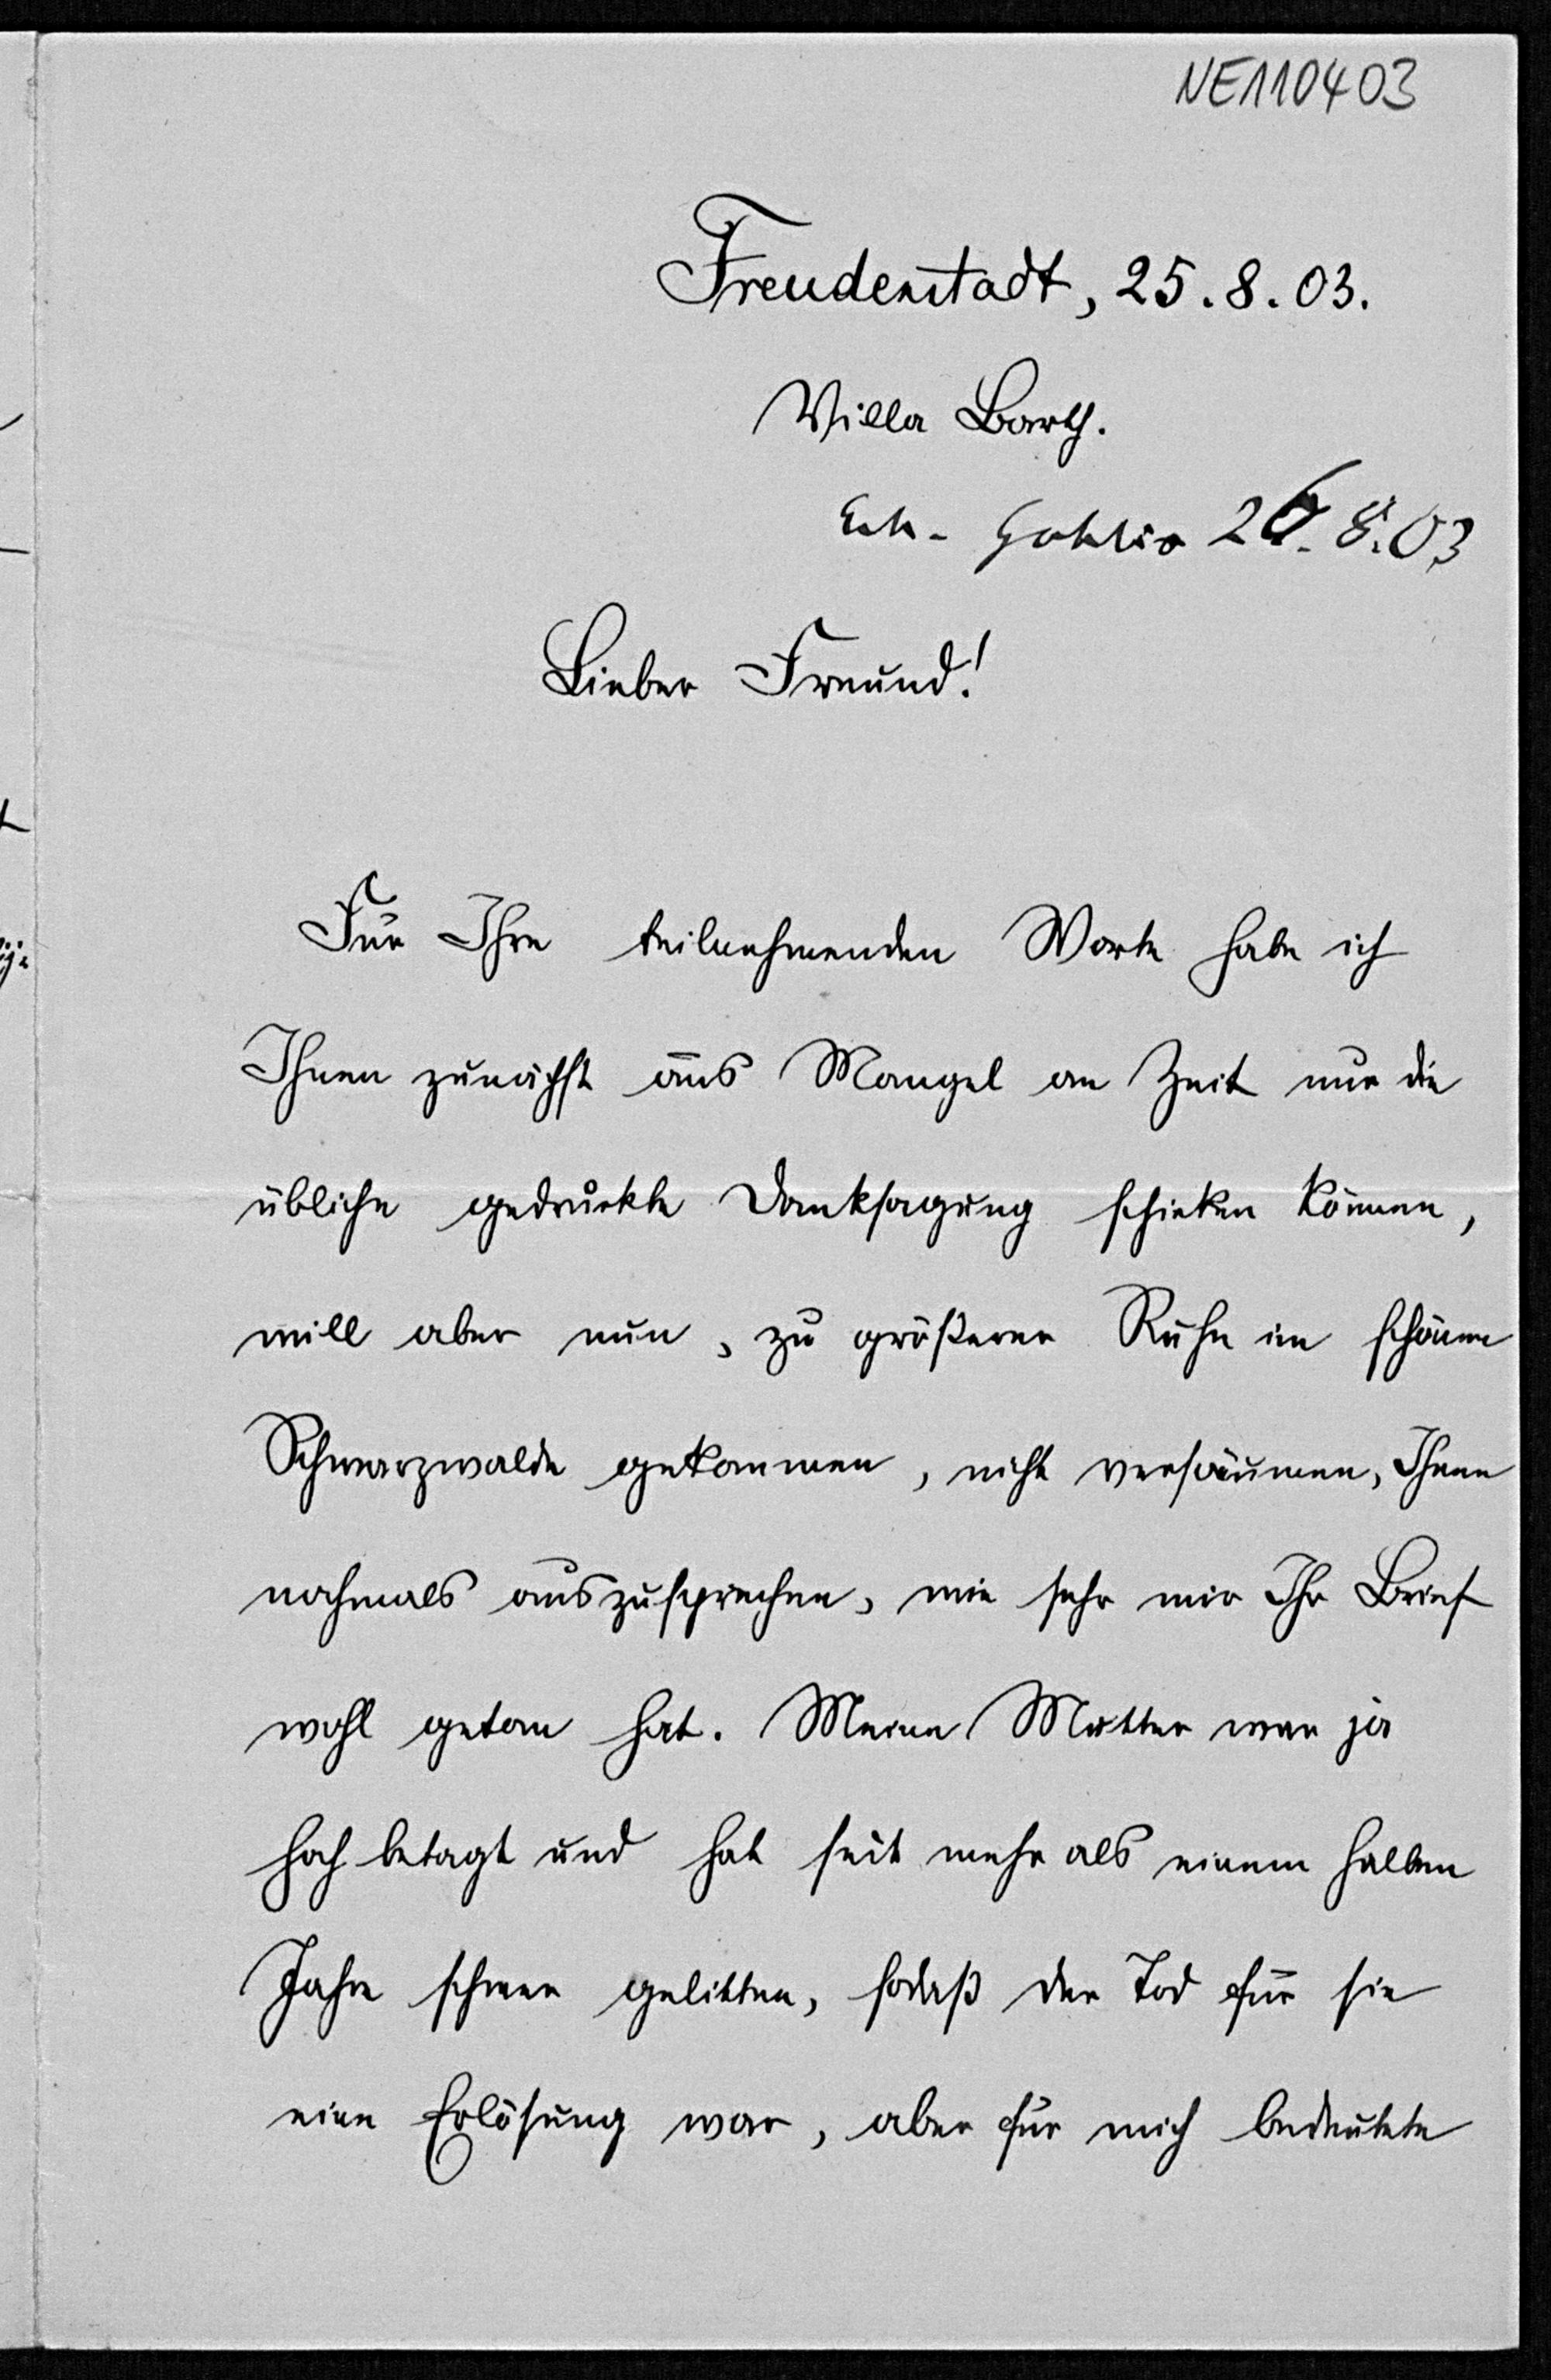 NE110403
Freudenstadt, 25.8.03.
Villa Barth.
Erh. Gohlis 26.8.03
Lieber Freund!
Für Ihre teilnehmenden Worte habe ich
Ihnen zunächst aus Mangel an Zeit nur die
übliche gedruckte Danksagung schicken können,
will aber nun, zu größerer Ruhe im schönen
Schwarzwalde gekommen, nicht versäumen, Ihnen
nochmals auszusprechen, wie sehr mir Ihr Brief
wohl getan hat. Meine Mutter war ja
hoch betagt und hat seit mehr als einem halben
Jahre schwer gelitten, sodaß der Tod für sie
eine Erlösung war, aber für mich bedeutete